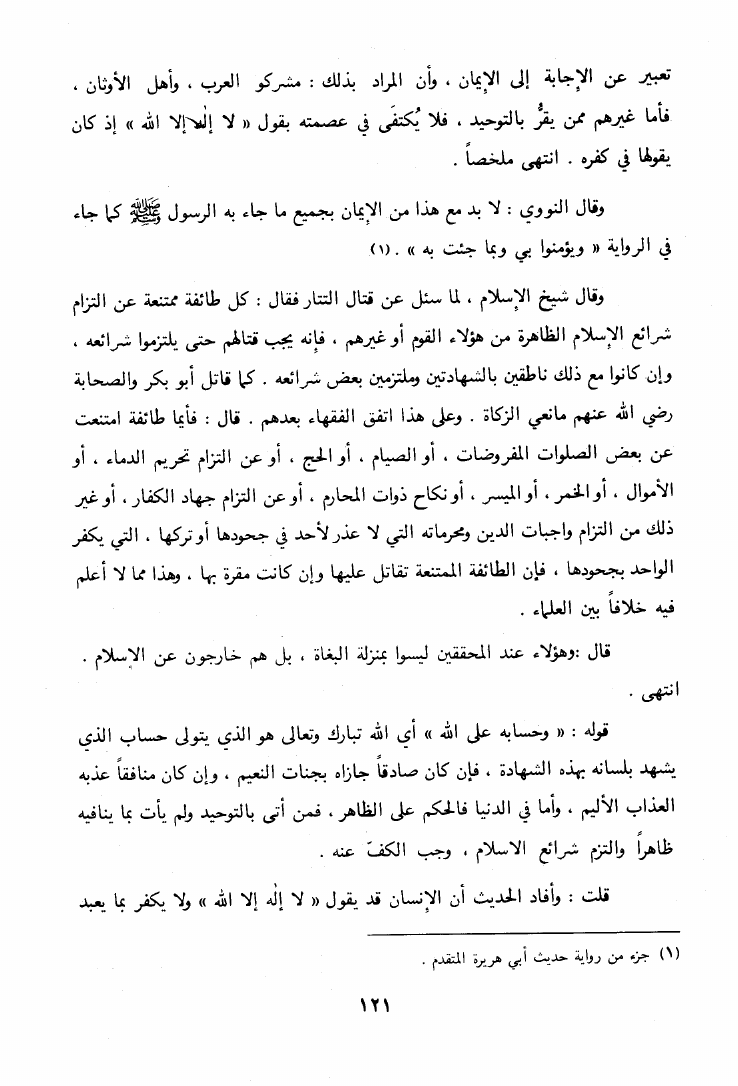 تعبير عن الإِجابة إلى الإِيمان ، وأن المراد بذلك : مشركو العرب ، وأهل الأوثان ،
فأما غيرهم ممن يقرُّ بالتوحيد ، فلا يُكتفَى في عصمته بقول « لا إلٰه إلا الله » إذ كان
يقولها في كفره . انتهى ملخصاً .
وقال النووي : لا بد مع هذا من الإِيمان بجميع ما جاء به الرسول ﷺ كما جاء
في الرواية « ويؤمنوا بي وبما جئت به » . (١)
وقال شيخ الإِسلام ، لما سئل عن قتال التتار فقال : كل طائفة ممتنعة عن التزام
شرائع الإِسلام الظاهرة من هؤلاء القوم أو غيرهم ، فإنه يجب قتالهم حتى يلتزموا شرائعه ،
وإن كانوا مع ذلك ناطقين بالشهادتين وملتزمين بعض شرائعه . كما قاتل أبو بكر والصحابة
رضي الله عنهم مانعي الزكاة . وعلى هذا اتفق الفقهاء بعدهم . قال : فأيما طائفة امتنعت
عن بعض الصلوات المفروضات ، أو الصيام ، أو الحج ، أو عن التزام تحريم الدماء ، أو
الأموال ، أو الخمر ، أو الميسر ، أو نكاح ذوات المحارم ، أو عن التزام جهاد الكفار ، أو غير
ذلك من التزام واجبات الدين ومحرماته التي لا عذر لأحد في جحودها أو تركها ، التي يكفر
الواحد بجحودها ، فإن الطائفة الممتنعة تقاتل عليها وإن كانت مقرة بها ، وهذا مما لا أعلم
فيه خلافاً بين العلماء .
قال :وهؤلاء عند المحققين ليسوا بمنزلة البغاة ، بل هم خارجون عن الاسلام .
انتهى .
قوله : « وحسابه على الله » أي الله تبارك وتعالى هو الذي يتولى حساب الذي
يشهد بلسانه بهذه الشهادة ، فإن كان صادقاً جازاه بجنات النعيم ، وإن كان منافقاً عذبه
العذاب الأليم ، وأما في الدنيا فالحكم على الظاهر ، فمن أتى بالتوحيد ولم يأت بما ينافيه
ظاهراً والتزم شرائع الاسلام ، وجب الكفّ عنه .
قلت : وأفاد الحديث أن الإِنسان قد يقول « لا إلٰه إلا الله » ولا يكفر بما يعبد
(١) جزء من رواية حديث أبي هريرة المتقدم .
١٢١